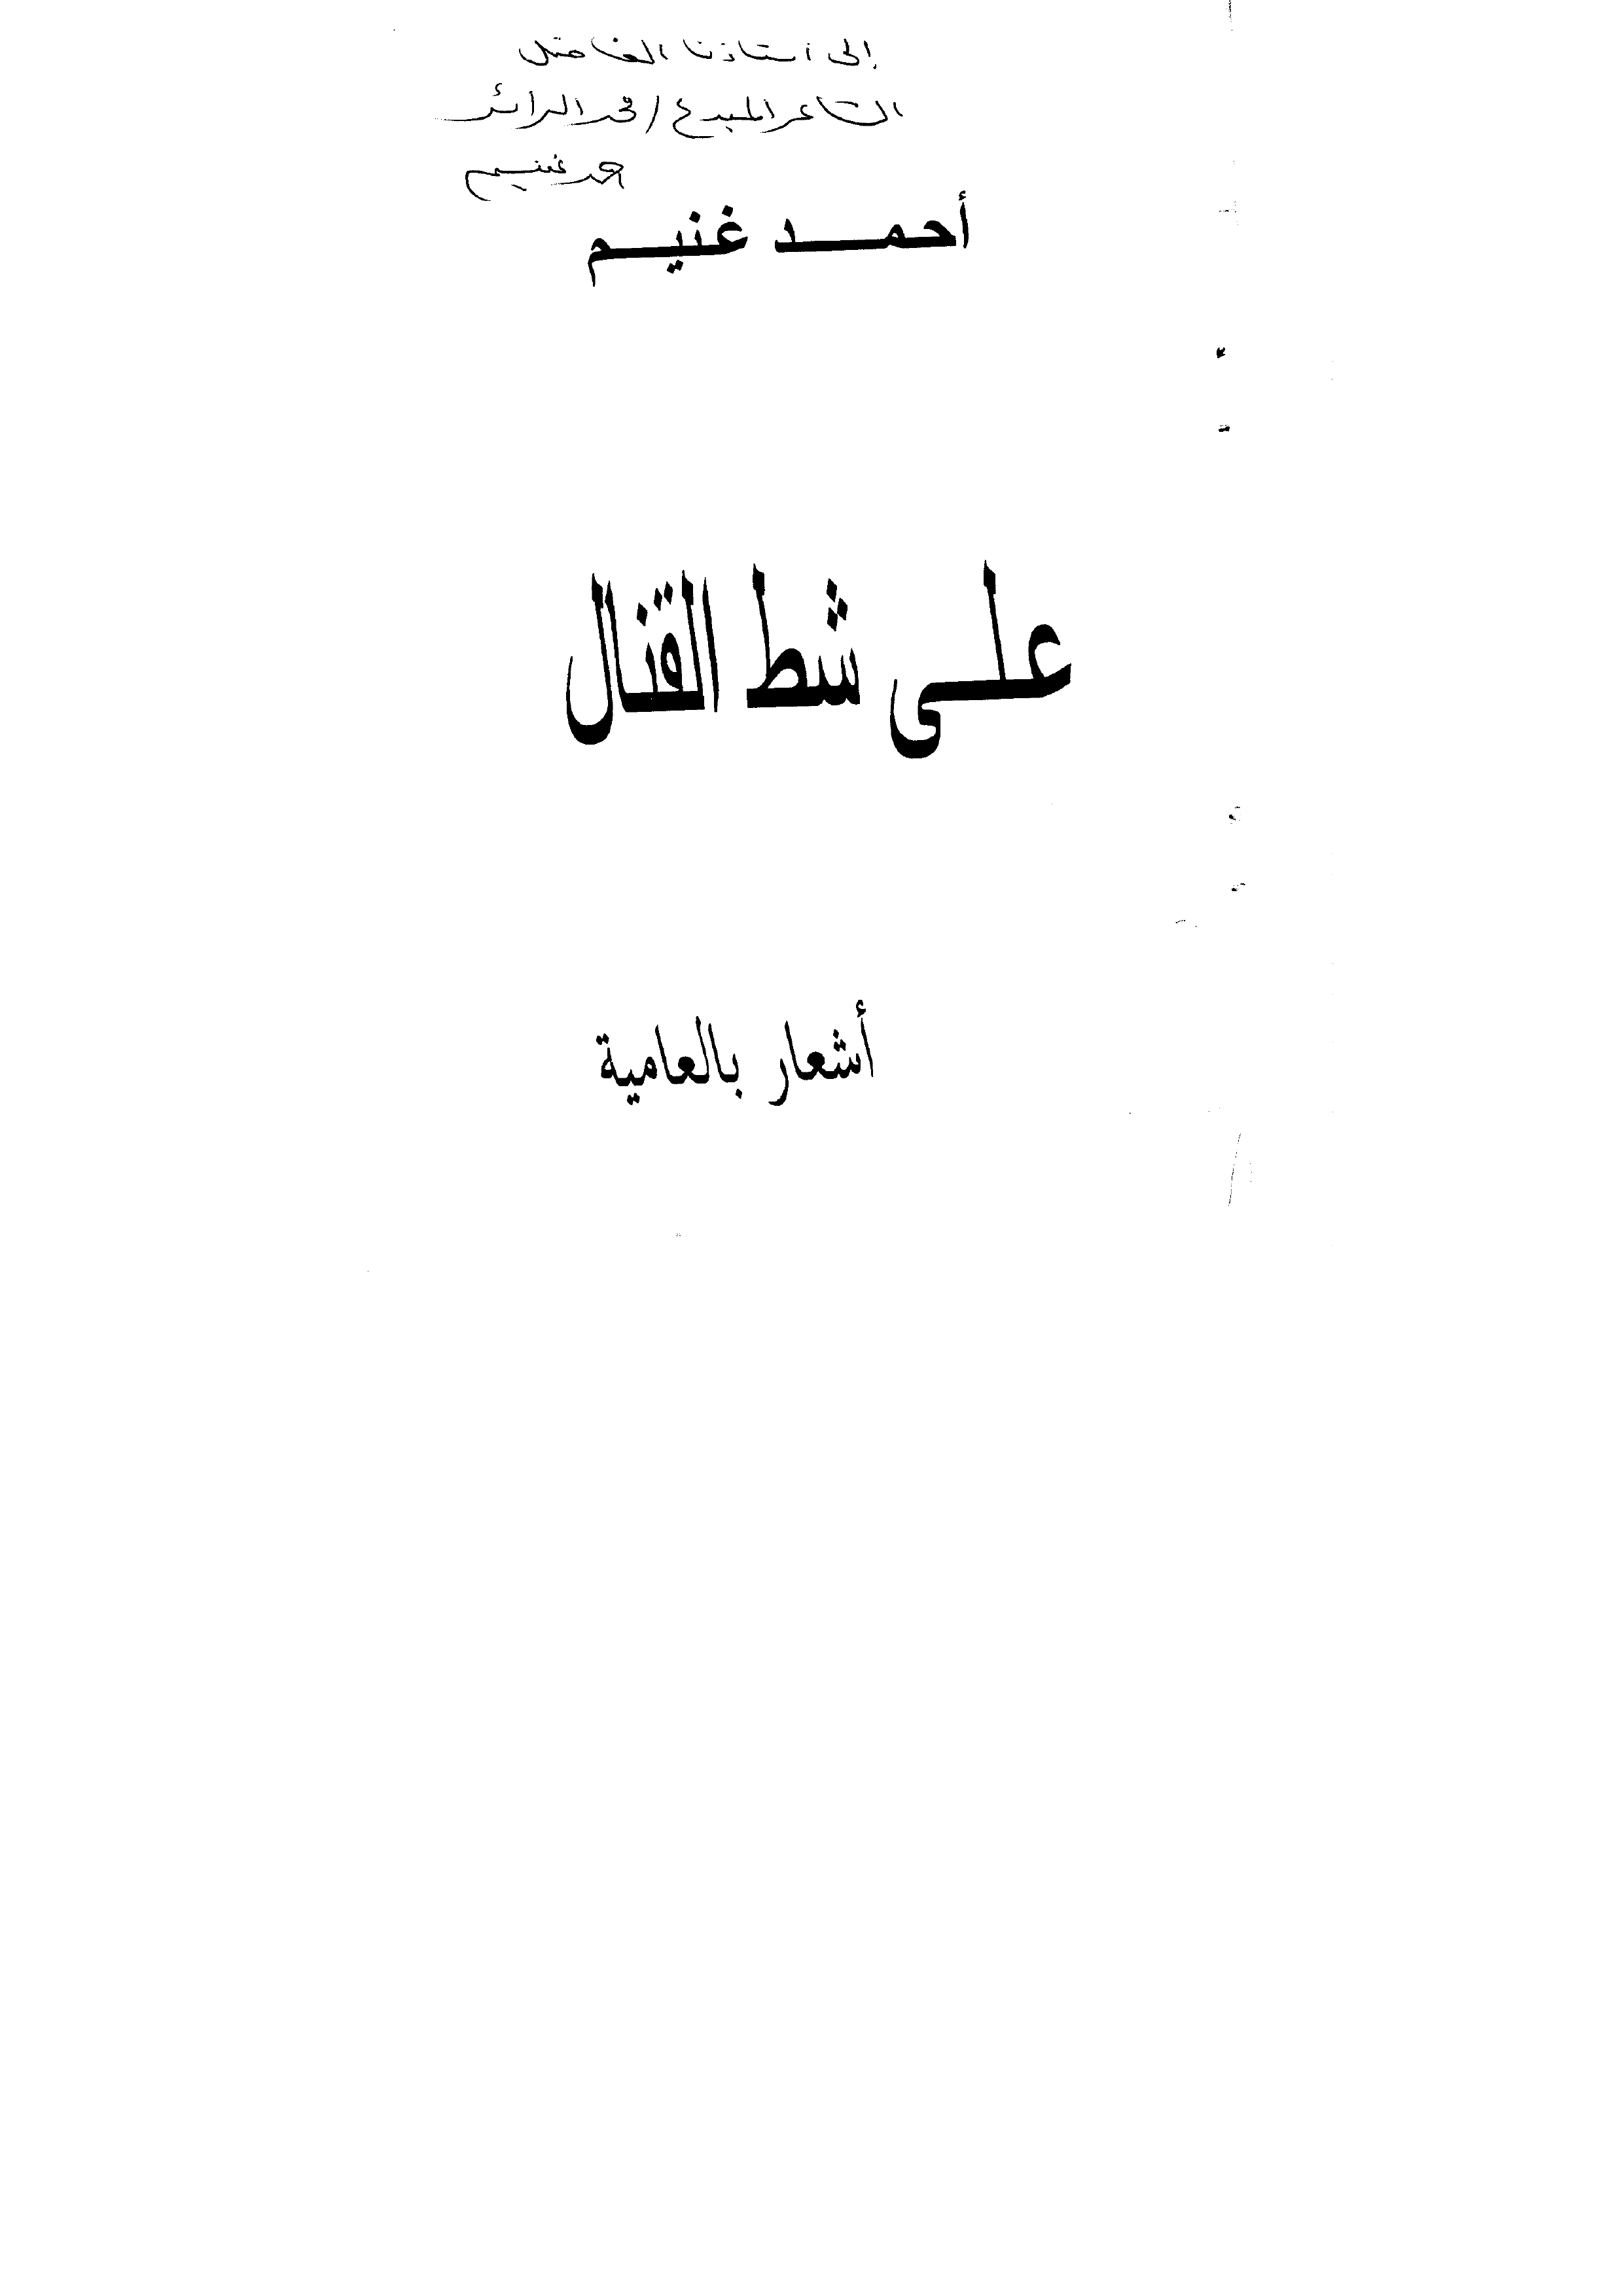 إلى استاذنا الفاضل
الشاعر المبدع /
أحمد غنيم
أحمد غنيم
على شط القنال
أشعار بالعامية